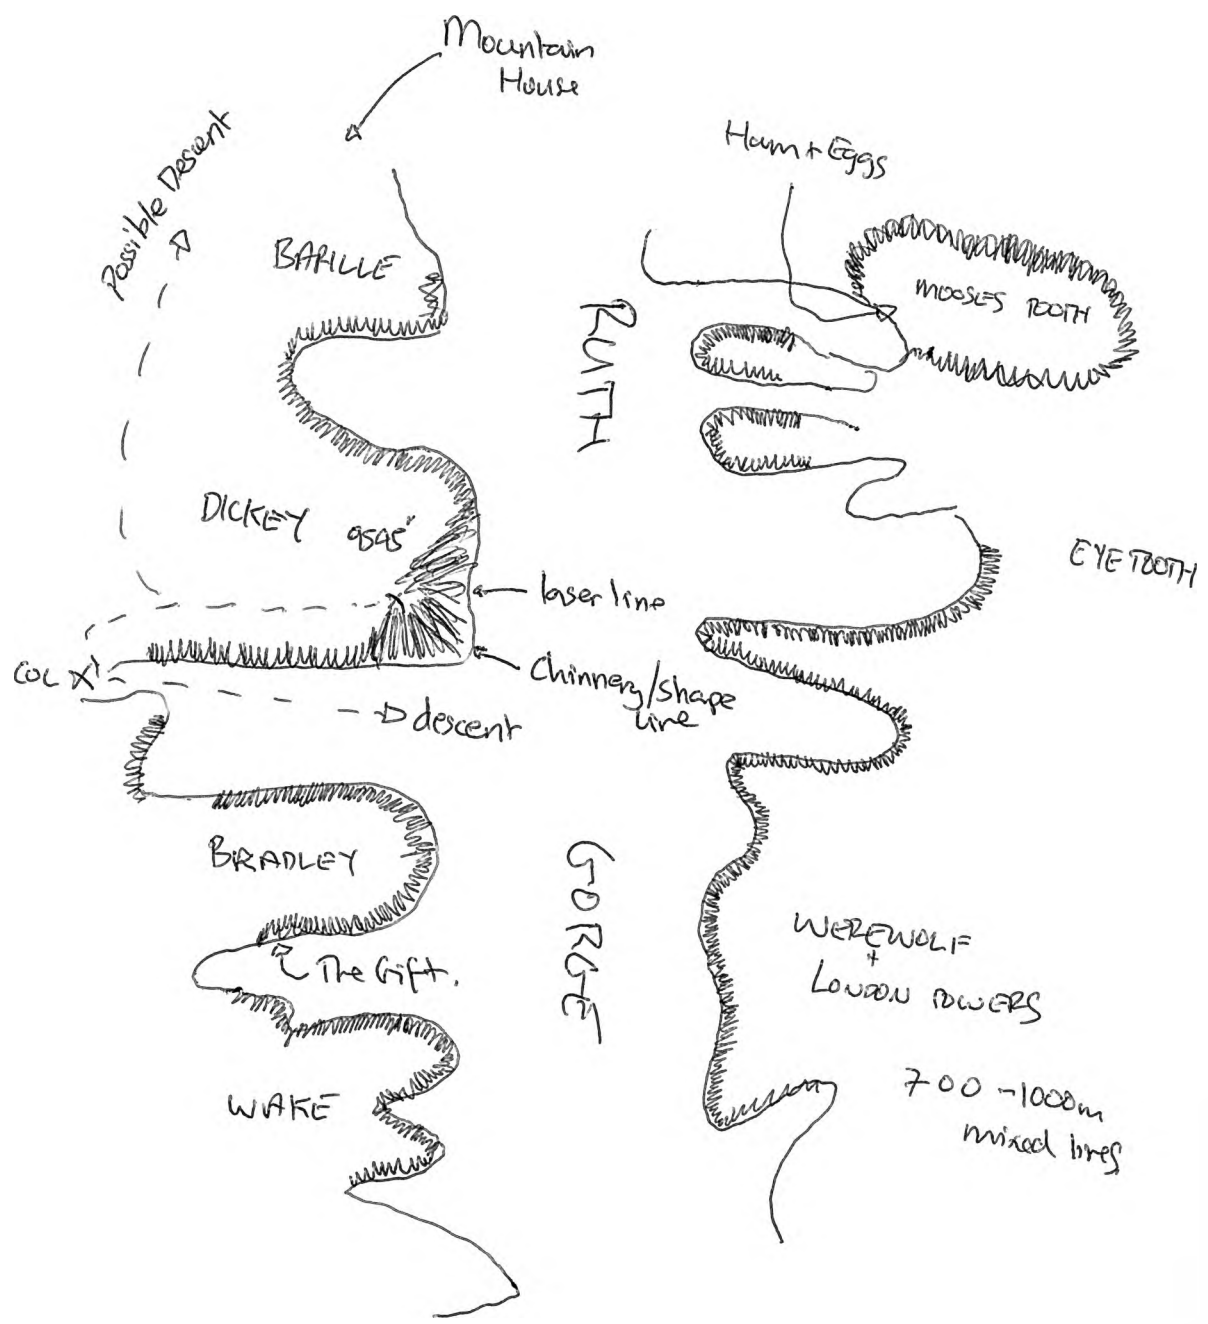 Mountain
House
Possible Descent
Ham + Eggs
BARILLE
MOOSES TOOTH
RUTH
DICKEY 9545'
EYE TOOTH
laser line
COL X
Chinnery/Shape
line
descent
BRADLEY
GORGE
The Gift.
WEREWOLF
+
LONDON TOWERS
WAKE
700-1000m
mixed lines